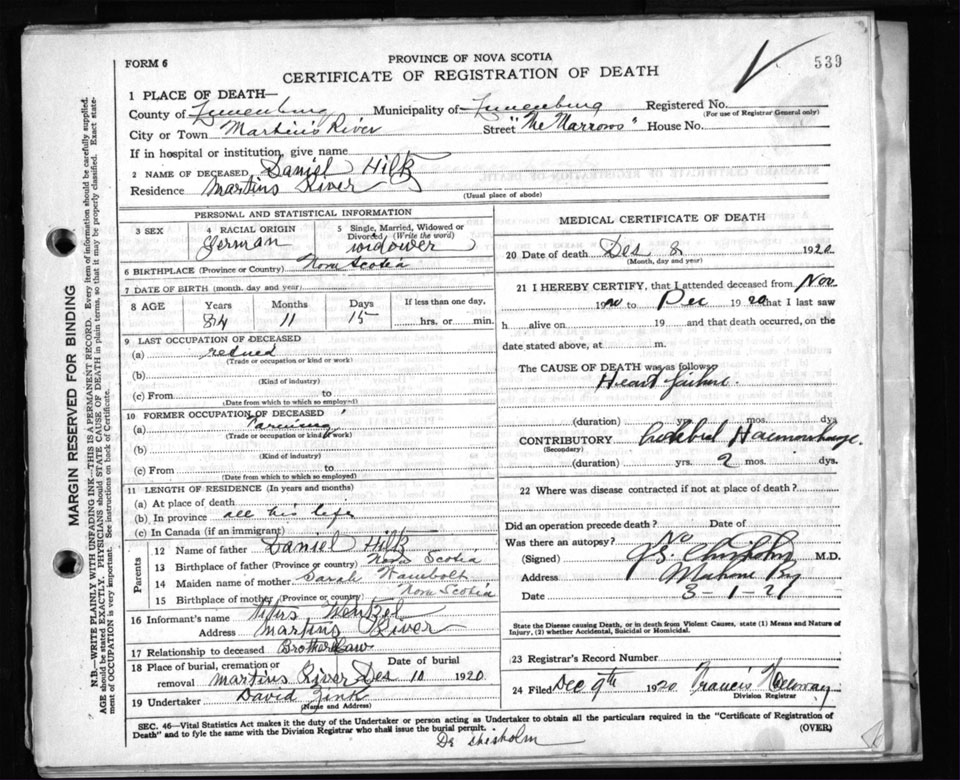 FORM 6
PROVINCE OF NOVA SCOTIA
539
CERTIFICATE OF REGISTRATION OF DEATH
1 PLACE OF DEATH—
County of Lunenburg Municipality of Lunenburg Registered No.
(For use of Registrar General only)
City or Town Martin's River Street "The Narrows" House No.
If in hospital or institution, give name
2 NAME OF DECEASED Daniel Hiltz
Residence Martins River
(Usual place of abode)
PERSONAL AND STATISTICAL INFORMATION
3 SEX
4 RACIAL ORIGIN German
5 Single, Married, Widowed or Divorced (Write the word) widower
6 BIRTHPLACE (Province or Country) Nova Scotia
7 DATE OF BIRTH (month, day and year)
8 AGE Years Months Days If less than one day,
84 11 15 hrs. or min.
9 LAST OCCUPATION OF DECEASED
(a) retired
(Trade or occupation or kind or work)
(b)
(Kind of industry)
(c) From to
(Date from which to which so employed)
10 FORMER OCCUPATION OF DECEASED
(a) Farming
(Trade or occupation or kind of work)
(b)
(Kind of industry)
(c) From to
(Date from which to which so employed)
11 LENGTH OF RESIDENCE (In years and months)
(a) At place of death
(b) In province all his life
(c) In Canada (if an immigrant)
Parents
12 Name of father Daniel Hiltz
13 Birthplace of father (Province or country) Nova Scotia
14 Maiden name of mother Sarah
15 Birthplace of mother (Province or country) Nova Scotia
16 Informant's name Titus Wentzel
Address Martins River
17 Relationship to deceased Brother Law
18 Place of burial, cremation or removal Martins River
Date of burial Des 10 1920
19 Undertaker David Zink
(Name and Address)
MEDICAL CERTIFICATE OF DEATH
20 Date of death Des 8 1920
(Month, day and year)
21 I HEREBY CERTIFY, that I attended deceased from Nov
1920 to Dec 1920 that I last saw
h alive on 19 and that death occurred, on the
date stated above, at m.
The CAUSE OF DEATH was as follows
Heart failure
(duration) yrs. mos. dys
CONTRIBUTORY Cerebral Haemorrhage.
(Secondary)
(duration) yrs. 2 mos. dys.
22 Where was disease contracted if not at place of death?
Did an operation precede death? Date of
Was there an autopsy? No
(Signed) Chisholm M.D.
Address Mahone Bay
Date 3-1-21
State the Disease causing Death, or in death from Violent Causes, state (1) Means and Nature of
Injury, (2) whether Accidental, Suicidal or Homicidal.
23 Registrar's Record Number
24 Filed Dec 9th 1920 Francis
Division Registrar
SEC. 46—Vital Statistics Act makes it the duty of the Undertaker or person acting as Undertaker to obtain all the particulars required in the "Certificate of Registration of
Death" and to fyle the same with the Division Registrar who shall issue the burial permit.
(OVER)
Dr Chisholm
MARGIN RESERVED FOR BINDING
N.B.—WRITE PLAINLY WITH UNFADING INK—THIS IS A PERMANENT RECORD. Every item of information should be carefully supplied.
AGE should be stated EXACTLY. PHYSICIANS should STATE CAUSE OF DEATH in plain terms, so that it may be properly classified. Exact statement
of OCCUPATION is very important. See instructions on back of Certificate.